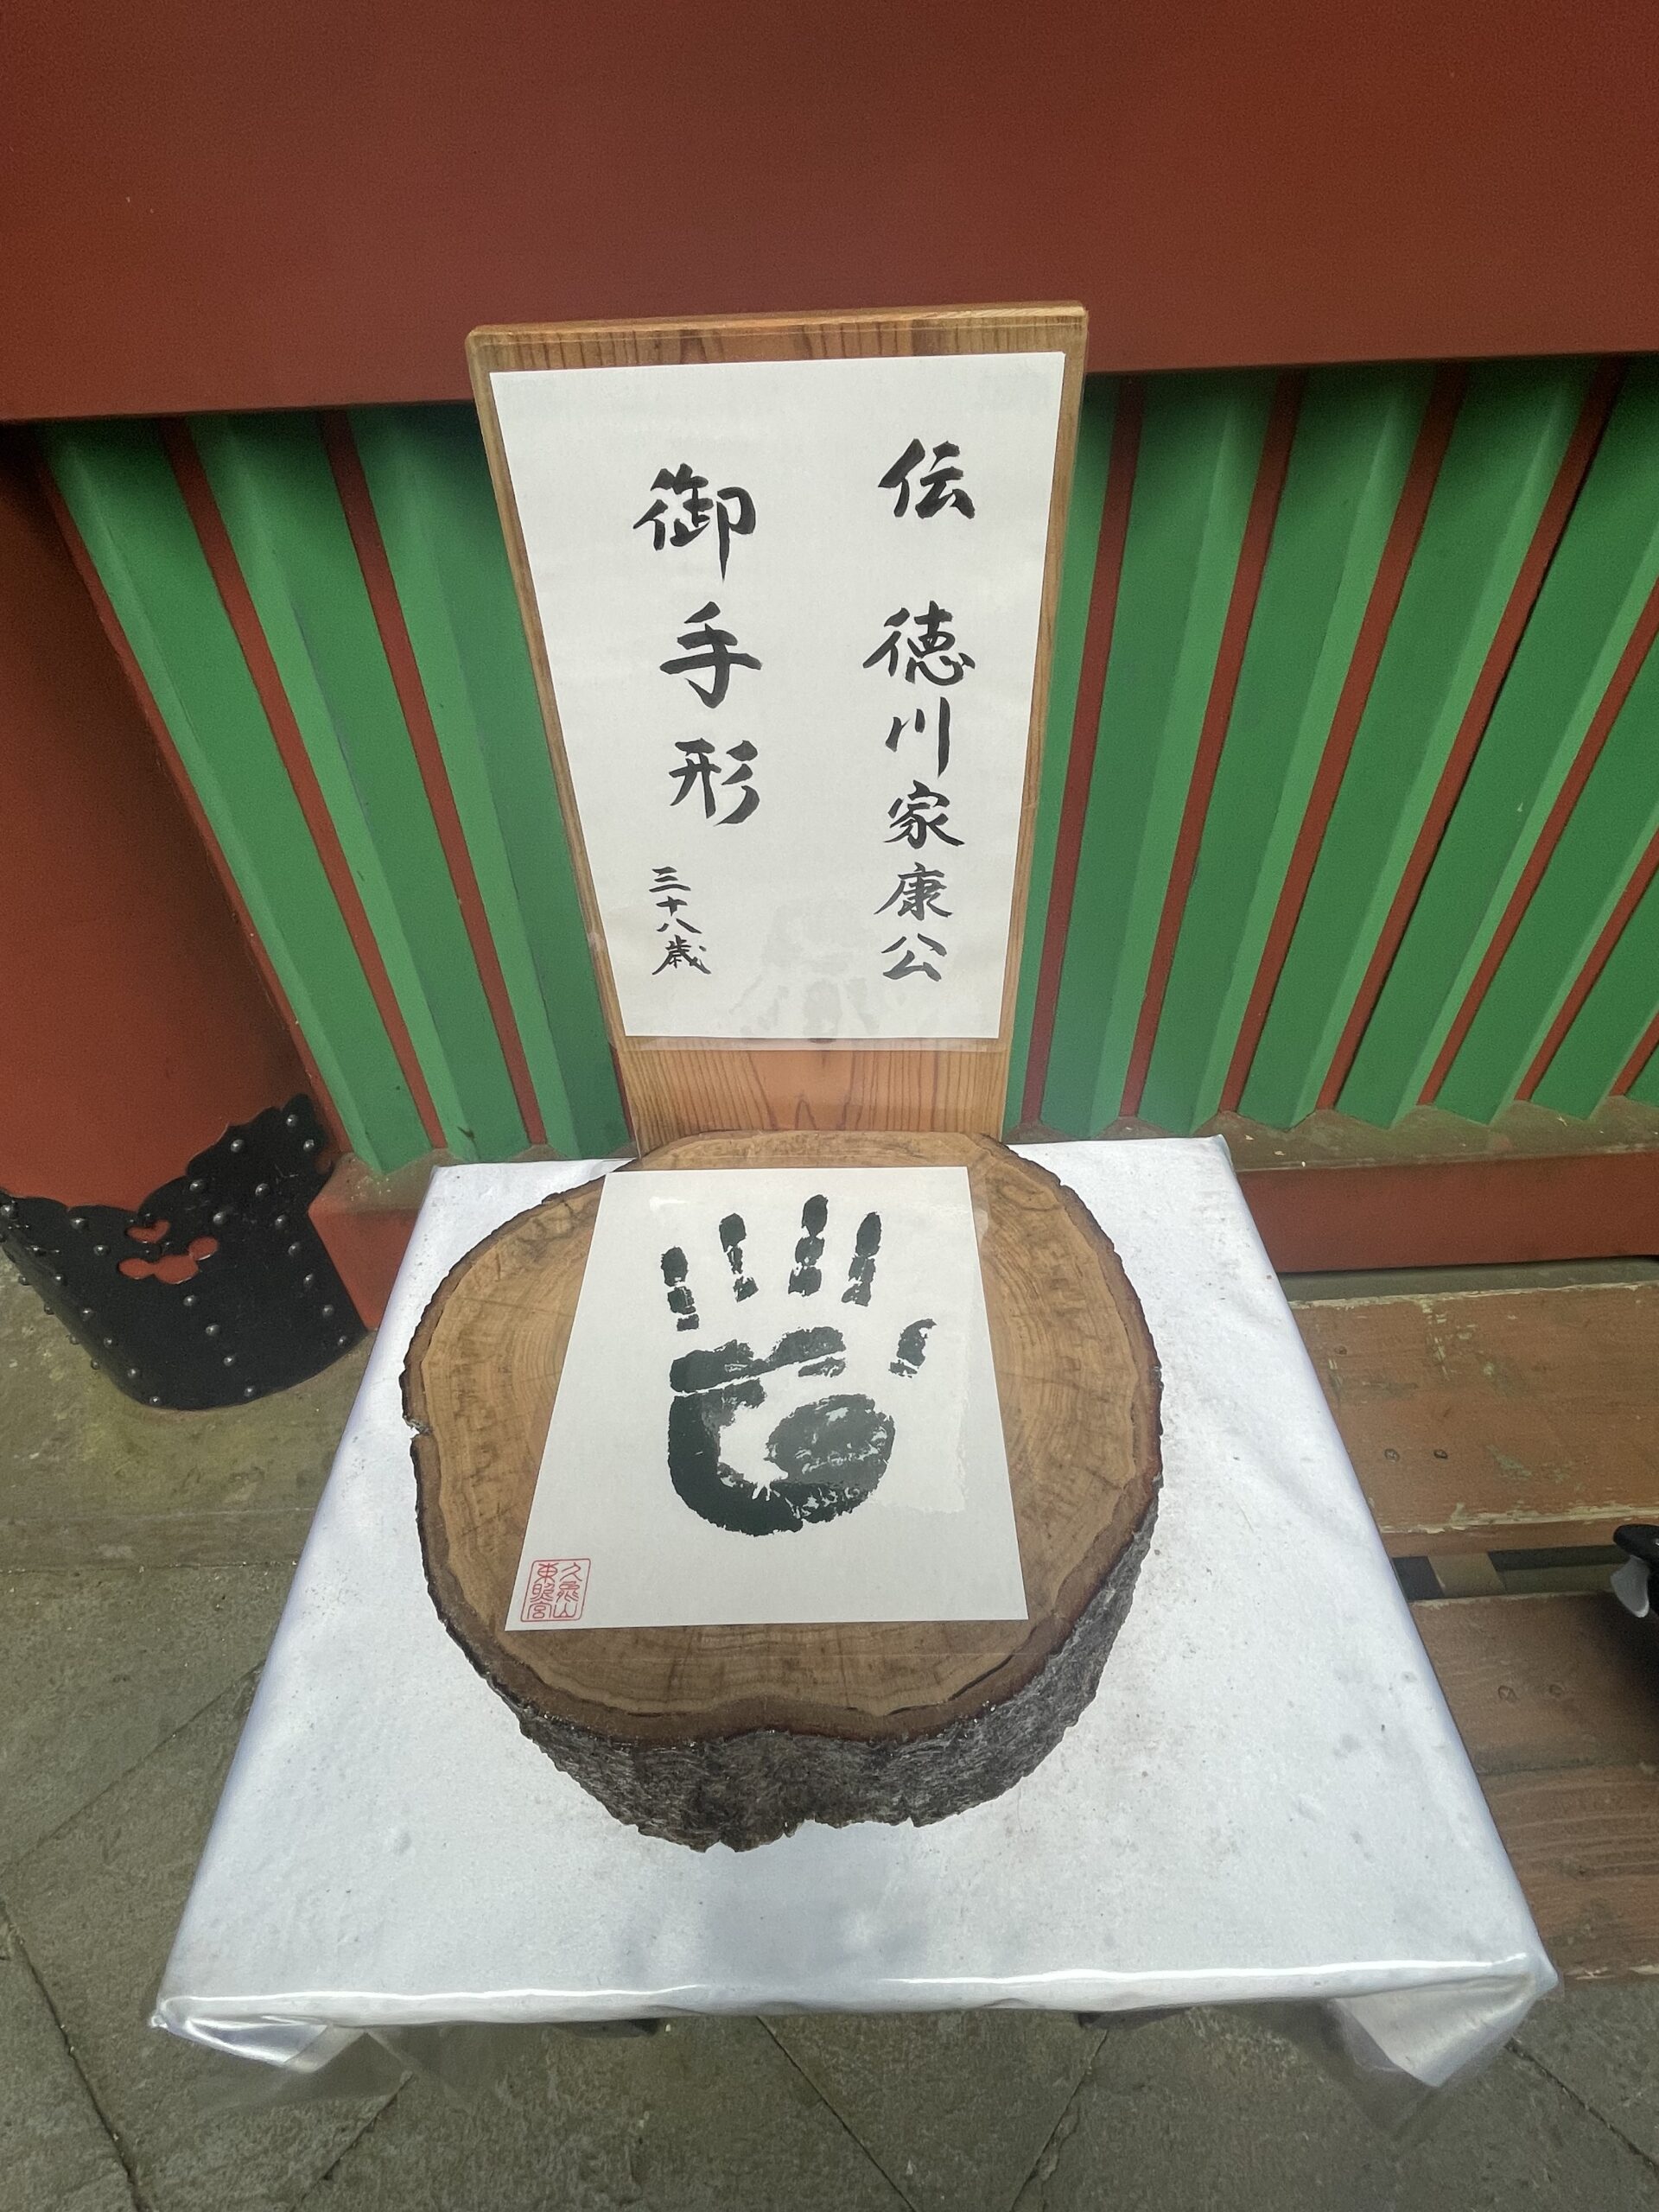 伝 徳川家康公
御手形 三十八歳
久能山
東照宮